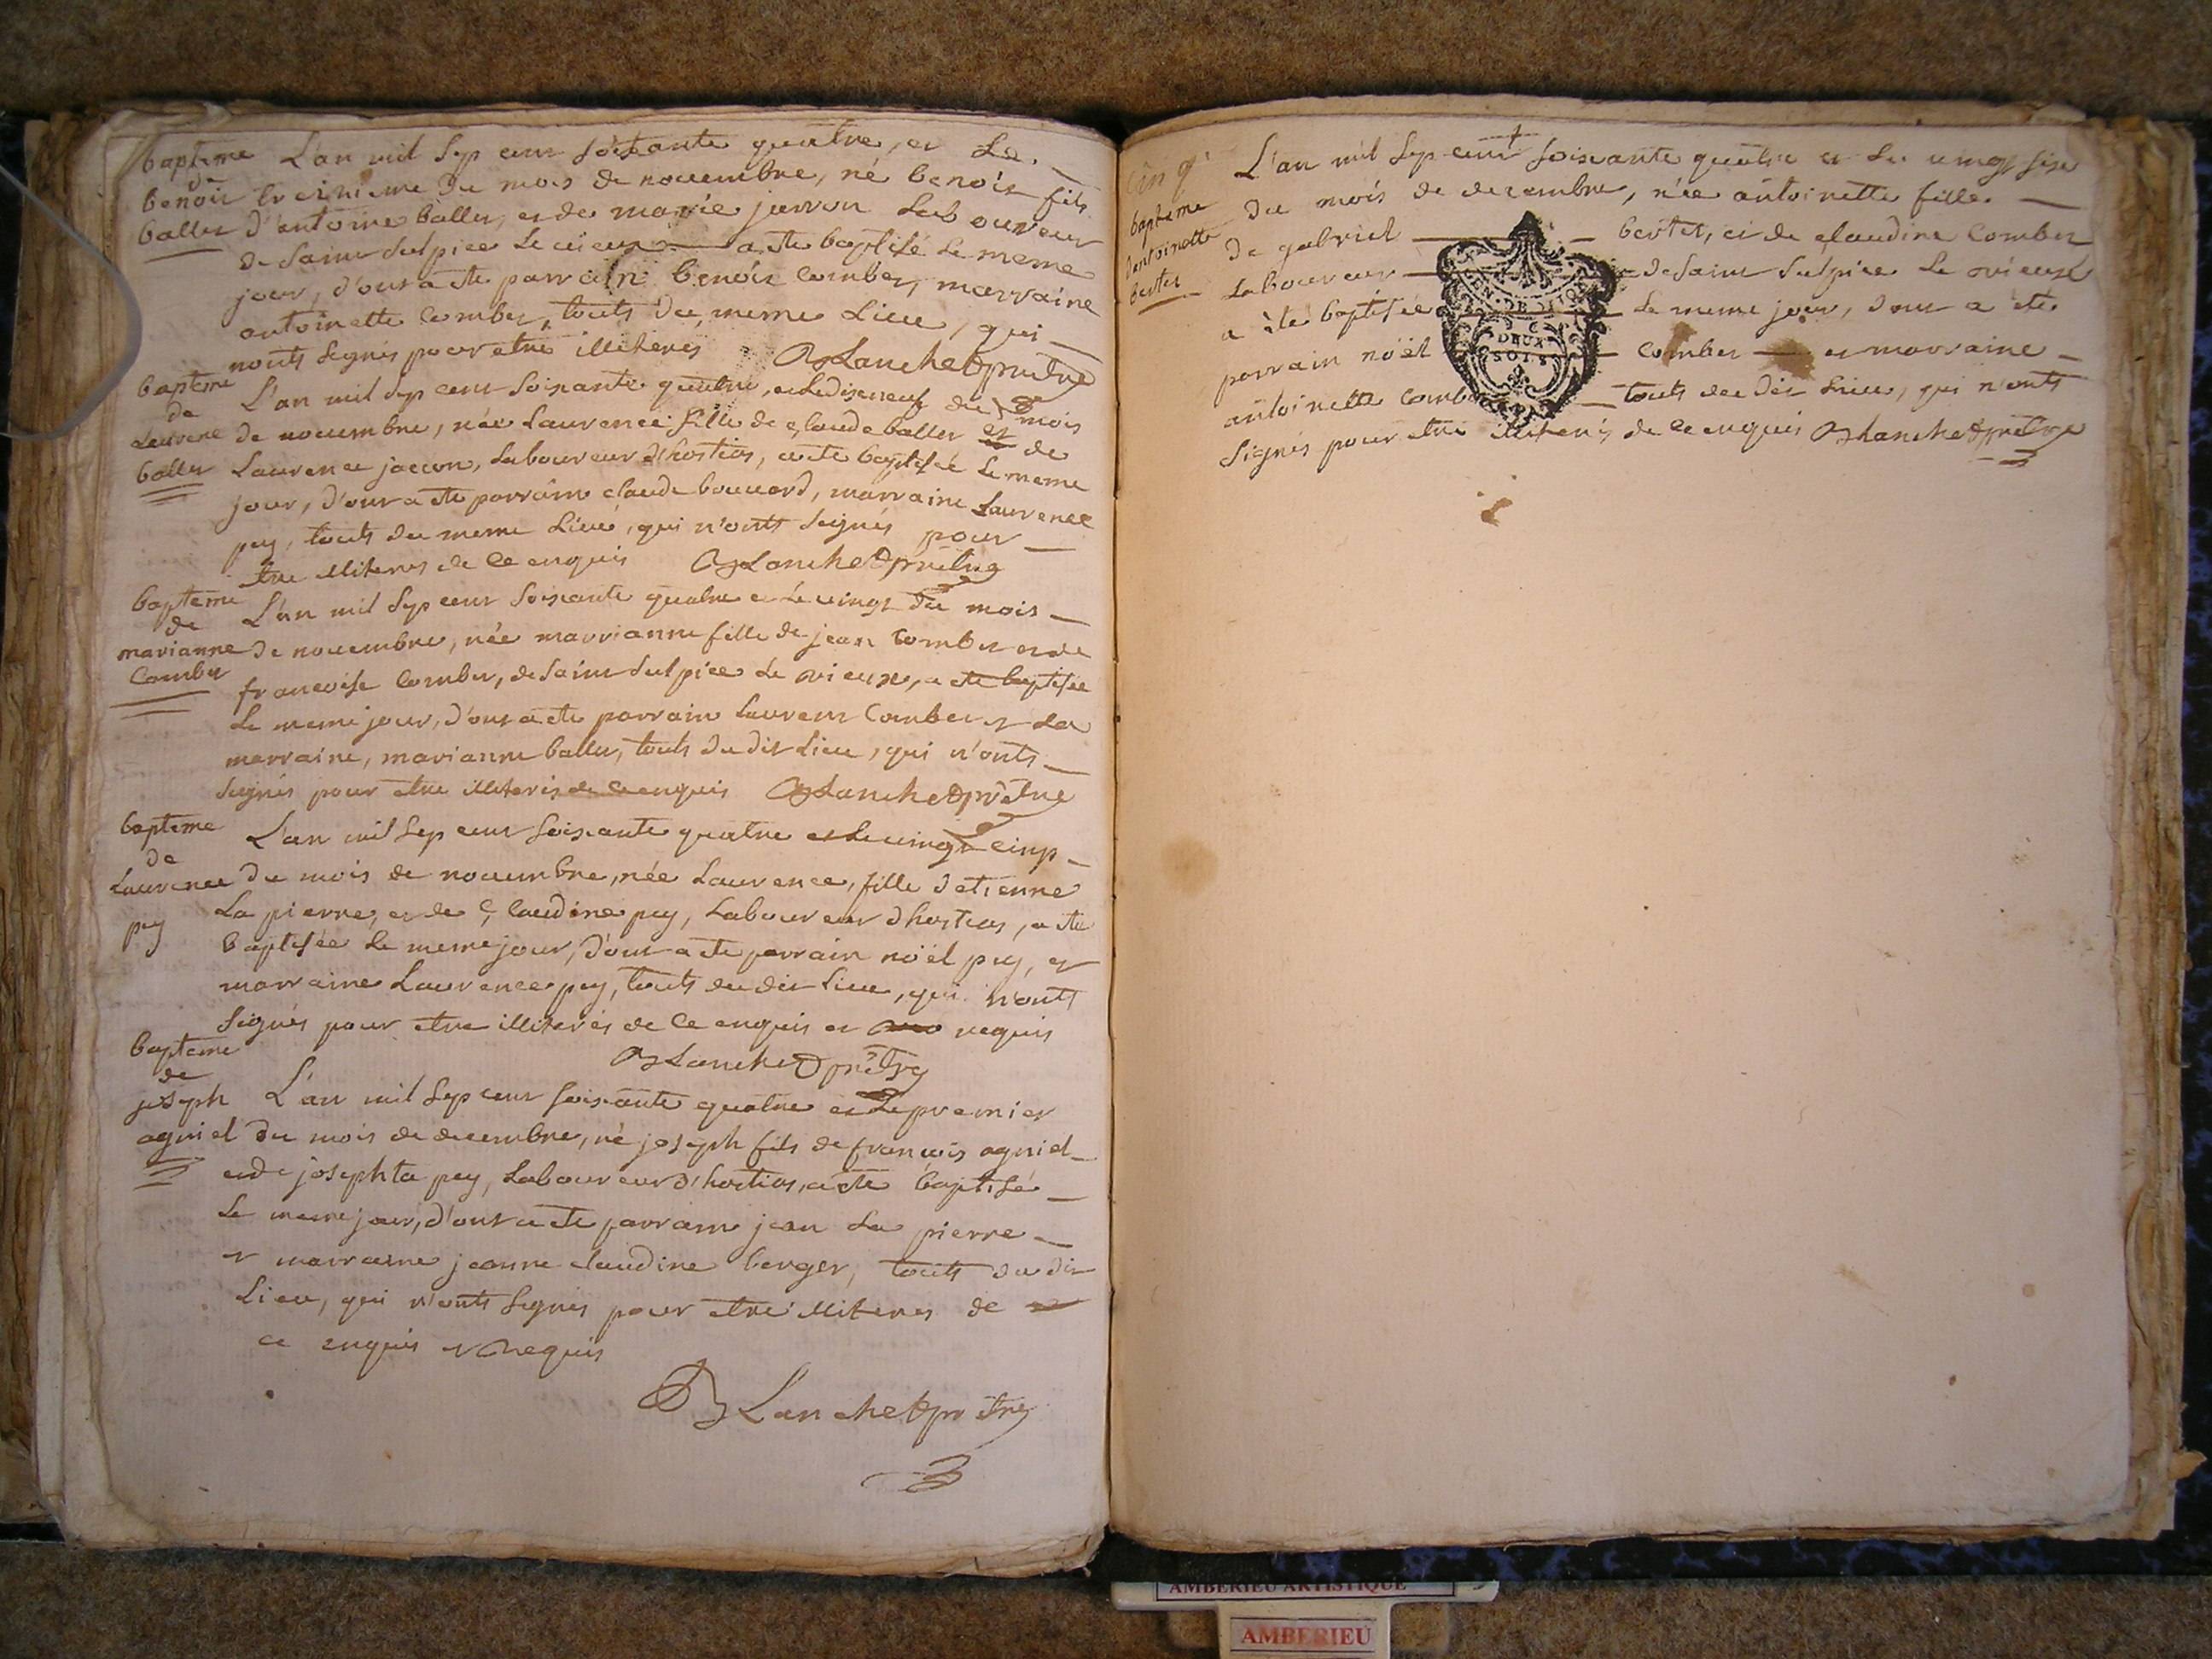 bapteme
de
benoit
ballet
L'an mil sep cent soixante quatre, et le
treizieme du mois de novembre, né benoit fils
d'antoine ballet, et de marie jarron laboureur
de saint sulpice le vieux a ete baptisé le meme
jour, d'ont a ete parrain benoit combet, marraine
antoinette combet, touts du meme lieu, qui
n'onts signés pour etre illiterés Blanchet prêtre
bapteme
de
laurence
ballet
L'an mil sep cent soixante quatre, et le diseneuf du mois
de novembre, née laurence fille de claude ballet et de
laurence jaccon, laboureur d'hostias, a ete baptisée le meme
jour, d'ont a ete parrain claude bouvard, marraine laurence
pey, touts du meme lieu, qui n'onts signés pour
etre illiterés de ce enquis Blanchet prêtre
bapteme
de
marianne
combet
L'an mil sep cent soixante quatre et le vingt du mois
de novembre, née marrianne fille de jean combet et de
francoise combet, de saint sulpice le vieux, a ete baptisée
le meme jour, d'ont a ete parrain laurent combet et la
marraine, marianne ballet, touts du dit lieu, qui n'onts
signés pour etre illiterés de ce enquis Blanchet prêtre
bapteme
de
laurence
pey
L'an mil sep cent soixante quatre et le vingt cinq
du mois de novembre, née laurence, fille d'etienne
la pierre, et de claudine pey, laboureur d'hostias, a ete
baptisée le meme jour, d'ont a ete parrain noël pey, et
marraine laurence pey, touts du dit lieu, qui n'onts
signés pour etre illiterés de ce enquis et requis
Blanchet prêtre
bapteme
de
joseph
agniel
L'an mil sep cent soixante quatre et le premier
du mois de decembre, né joseph fils de francois agniel
et de josephta pey, laboureur d'hostias, a ete baptisé
le meme jour, d'ont a ete parrain jean la pierre
et marraine jeanne claudine berger, touts du dit
lieu, qui n'onts signés pour etre illiterés de
ce enquis et requis
Blanchet prêtre
cinq
bapteme
d'antoinette
bertet
L'an mil sep cent soixante quatre et le vingt sise
du mois de decembre, née antoinette fille
de gabriel bertet, et de claudine combet
laboureur de saint sulpice le vieux
a été baptisée le meme jour, dont a eté
parrain noël combet et marraine
antoinette combet touts du dit lieu, qui n'onts
signés pour etre illiterés de ce enquis Blanchet prêtre
DEUX
SOLS
AMBERIEU ARTISTIQUE
AMBERIEU